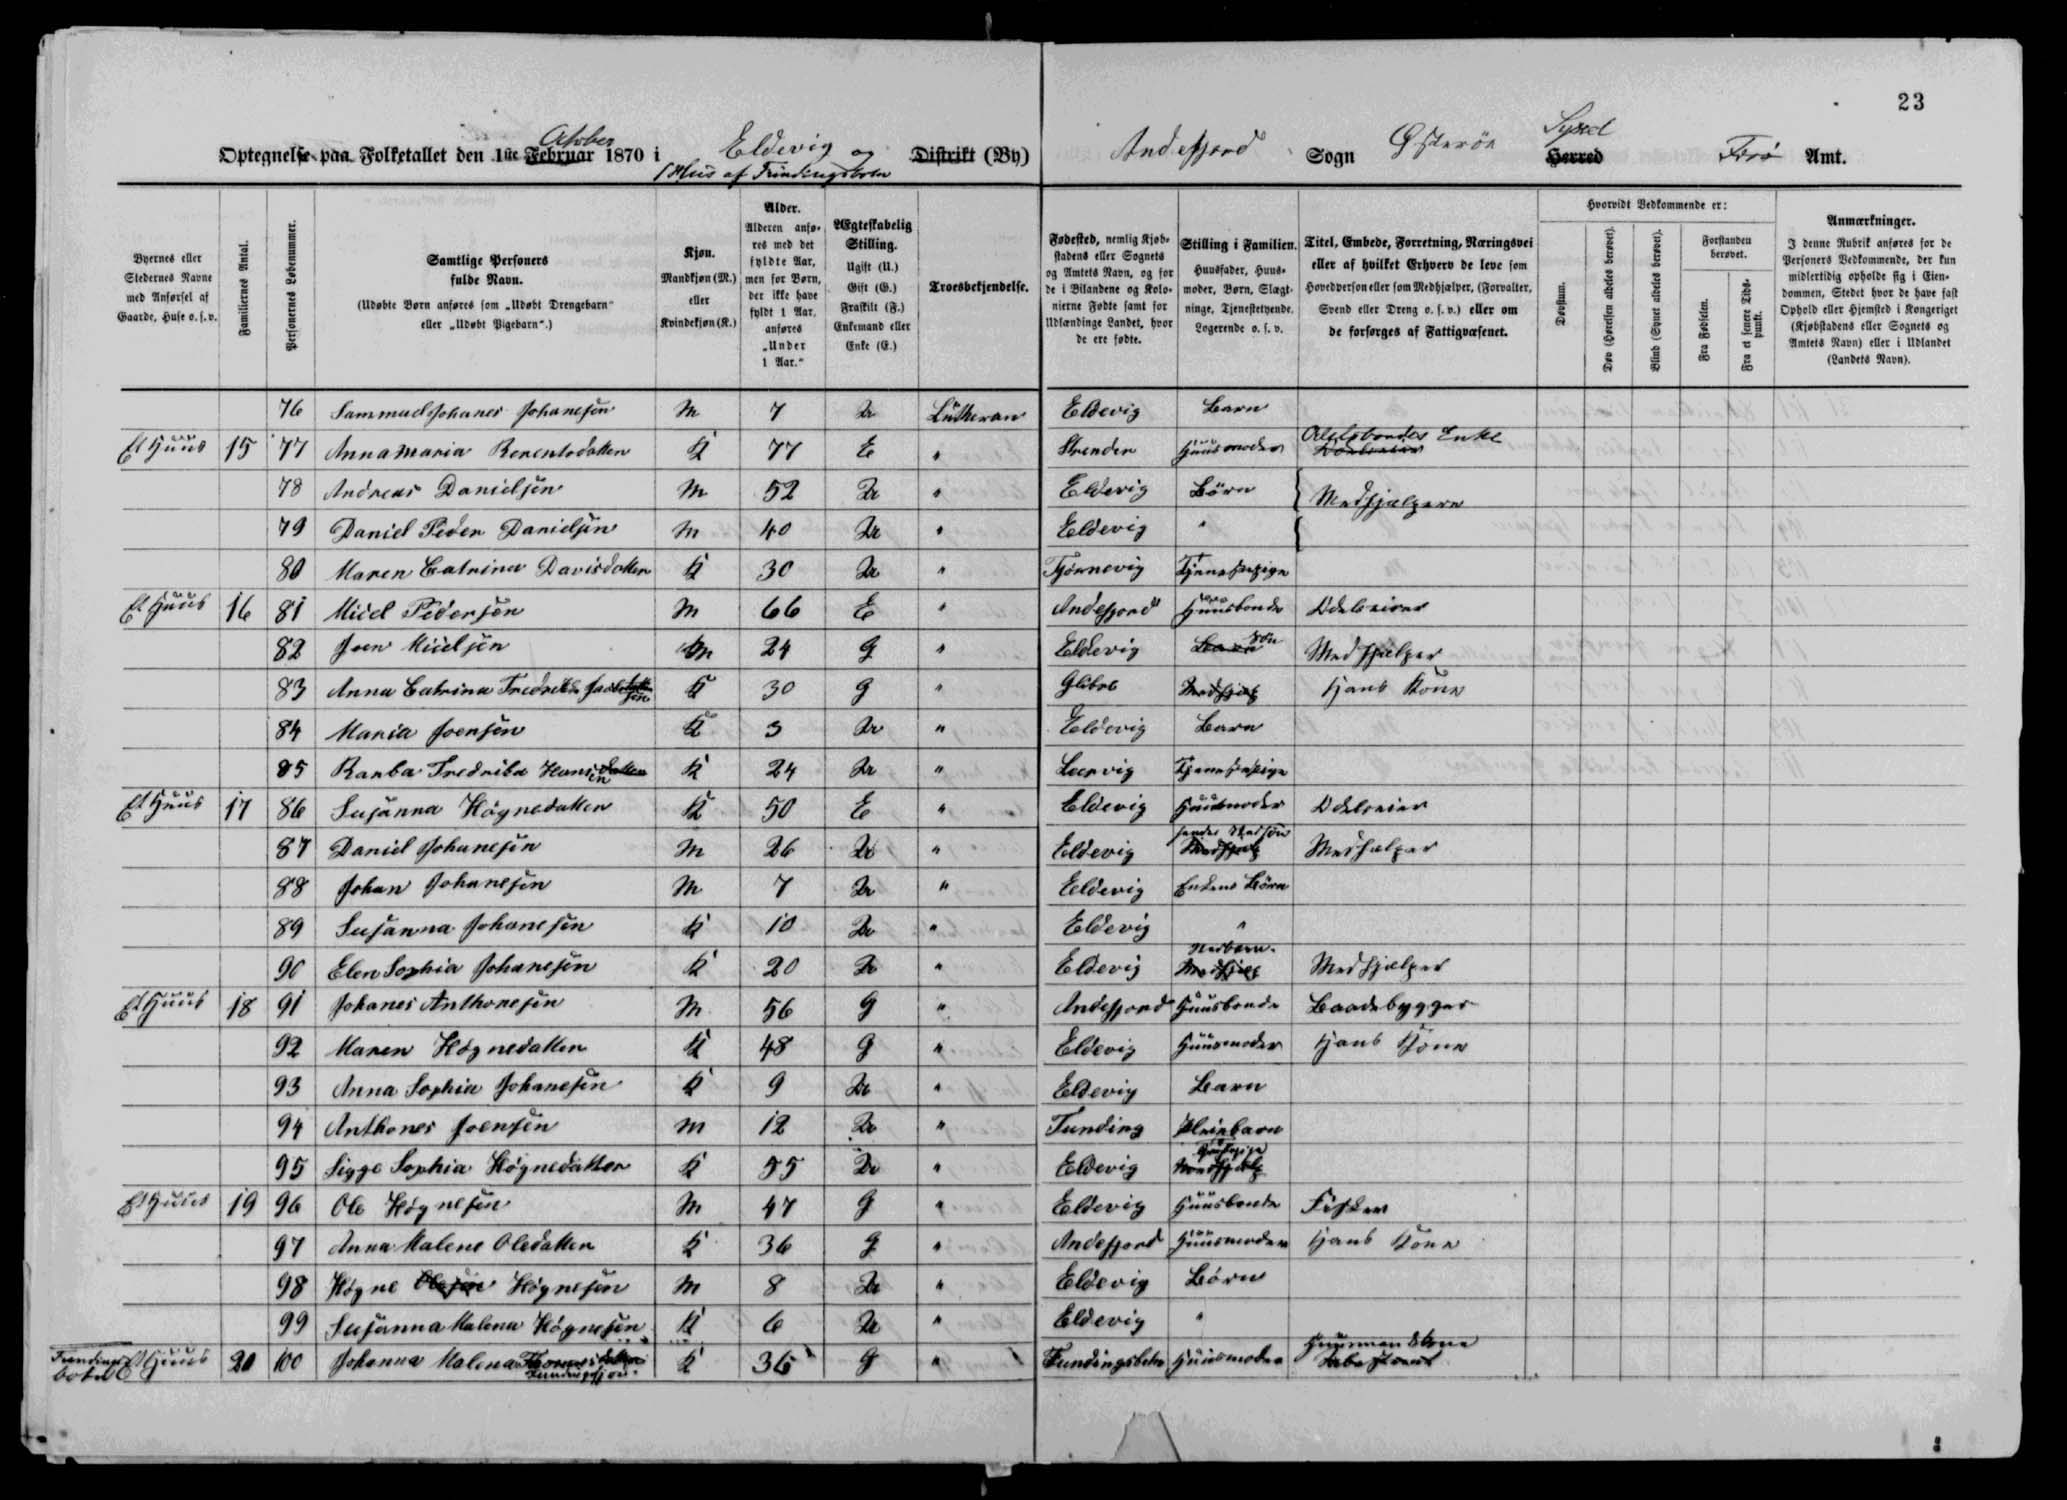 23
Optegnelse paa Folketallet den 1ste Februar October 1870 i Eldevig og Distrikt (By)
1 Hus af Fundingsboten
Andefjord Sogn Østerøe Herred Syssel Færø Amt.
Byernes eller Stedernes Navne med Anførsel af Gaarde, Huse o. s. v.
Familiernes Antal.
Personernes Løbenummer.
Samtlige Personers fulde Navn.
(Udøbte Børn anføres som „Udøbt Drengebarn" eller „Udøbt Pigebarn".)
Kjøn.
Mandkjøn (M.) eller Kvindekjøn (K.)
Alder.
Alderen anføres med det fyldte Aar, men for Børn, der ikke have fyldt 1 Aar, anføres „Under 1 Aar."
Ægteskabelig Stilling.
Ugift (U.) Gift (G.) Fraskilt (F.) Enkemand eller Enke (E.)
Troesbekjendelse.
Fødested, nemlig Kjøbstadens eller Sognets og Amtets Navn, og for de i Bilandene og Kolonierne Fødte samt for Udlændinge Landet, hvor de ere fødte.
Stilling i Familien.
Huusfader, Huusmoder, Børn, Slægtninge, Tjenestetyende, Logerende o. s. v.
Titel, Embede, Forretning, Næringsvei eller af hvilket Erhverv de leve som Hovedperson eller som Medhjælper, (Forvalter, Svend eller Dreng o. s. v.) eller om de forsørges af Fattigvæsenet.
Hvorvidt Vedkommende er:
Døvstum.
Døv (Hørelsen aldeles berøvet).
Blind (Synet aldeles berøvet).
Forstanden berøvet.
Fra Fødselen.
Fra et senere Tidspunkt.
Anmærkninger.
I denne Rubrik anføres for de Personers Vedkommende, der kun midlertidig opholde sig i Eiendommen, Stedet hvor de have fast Ophold eller Hjemsted i Kongeriget (Kjøbstadens eller Sognets og Amtets Navn) eller i Udlandet (Landets Navn).
76 Sammuel Johanes Johanesen M 7 U Lutheran Eldevig Barn
Et Huus 15 77 Anna Maria K 77 E " Strender Huusmoder Odelsbondes Enke
78 Andreas Danielsen M 52 U " Eldevig Børn { Medhjælpere
79 Daniel Peder Danielsen M 40 U " Eldevig " {
80 Maren Catrina Davisdatter K 30 U " Tjørnevig Tjenestepige
Et Huus 16 81 Miiel Pedersen M 66 E " Andefjord Huusbonde Odelseier
82 Joen Miielsen M 24 G " Eldevig Barn Søn Medhjælper
83 Anna Catrina K 30 G " Medhjælp Hans Kone
84 Maria Joensen K 3 U " Eldevig Barn
85 Fredrika Hansen K 24 U " Leervig Tjenestepige
Et Huus 17 86 Susanna Høgnedatter K 50 E " Eldevig Huusmoder Odelseier
87 Daniel Johanesen M 26 U " Eldevig Medhjælp Medhjælper
88 Johan Johanesen M 7 U " Eldevig Enkens Børn
89 Susanna Johanesen K 10 U " Eldevig "
90 Elen Sophia Johanesen K 20 U " Eldevig Medhjælp Medhjælper
Et Huus 18 91 Johanes Anthonesen M 56 G " Andefjord Huusbonde Baadebygger
92 Maren Høgnedatter K 48 G " Eldevig Huusmoder Hans Kone
93 Anna Sophia Johanesen K 9 U " Eldevig Barn
94 Anthones Joensen M 12 U " Funding Pleiebarn
95 Sigge Sophia Høgnedatter K 55 U " Eldevig Medhjælp
Et Huus 19 96 Ole Høgnesen M 47 G " Eldevig Huusbonde Fisker
97 Anna Malene Oledatter K 36 G " Andefjord Huusmoder Hans Kone
98 Høgne Olesen Høgnesen M 8 U " Eldevig Børn
99 Susanna Malena Høgnesen K 6 U " Eldevig "
Fundingsboten Et Huus 20 100 Johanna Malena K 36 G " Fundingsboten Huusmoder Huusmands Kone